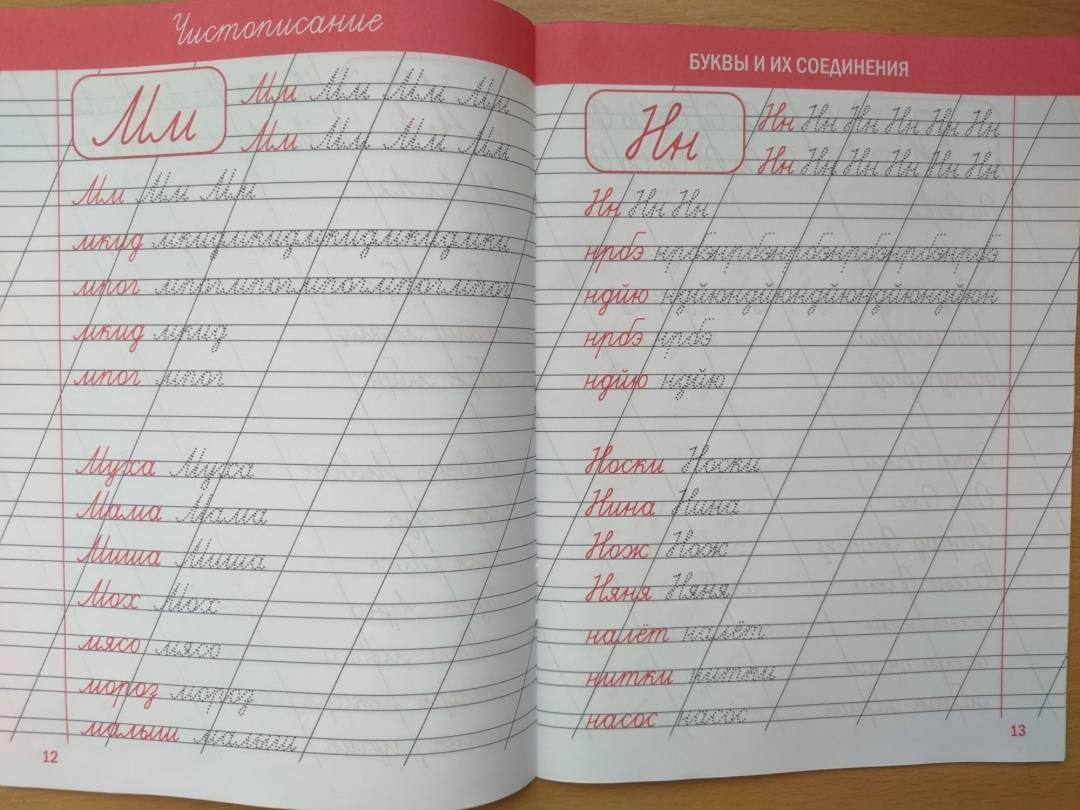 Чистописание
Мм
Мм Мм Мм Мм
Мм Мм Мм Мм
Мм Мм Мм
мкид мкидмкидмкидмкидмки
мпог мпогмпогмпогмпогмпог
мкид мкид
мпог мпог
Муха Муха
Мама Мама
Миша Миша
Мох Мох
мясо мясо
мороз мороз
малыш малыш
12
БУКВЫ И ИХ СОЕДИНЕНИЯ
Нн
Нн Нн Нн Нн Нн Нн
Нн Нн Нн Нн Нн Нн
Нн Нн Нн
нрбэ нрбэнрбэнрбэнрбэнрбэнрбэ
ндйю ндйюндйюндйюндйюндйюн
нрбэ нрбэ
ндйю ндйю
Носки Носки
Нина Нина
Нож Нож
Няня Няня
налёт налёт
нитки нитки
насос насос
13